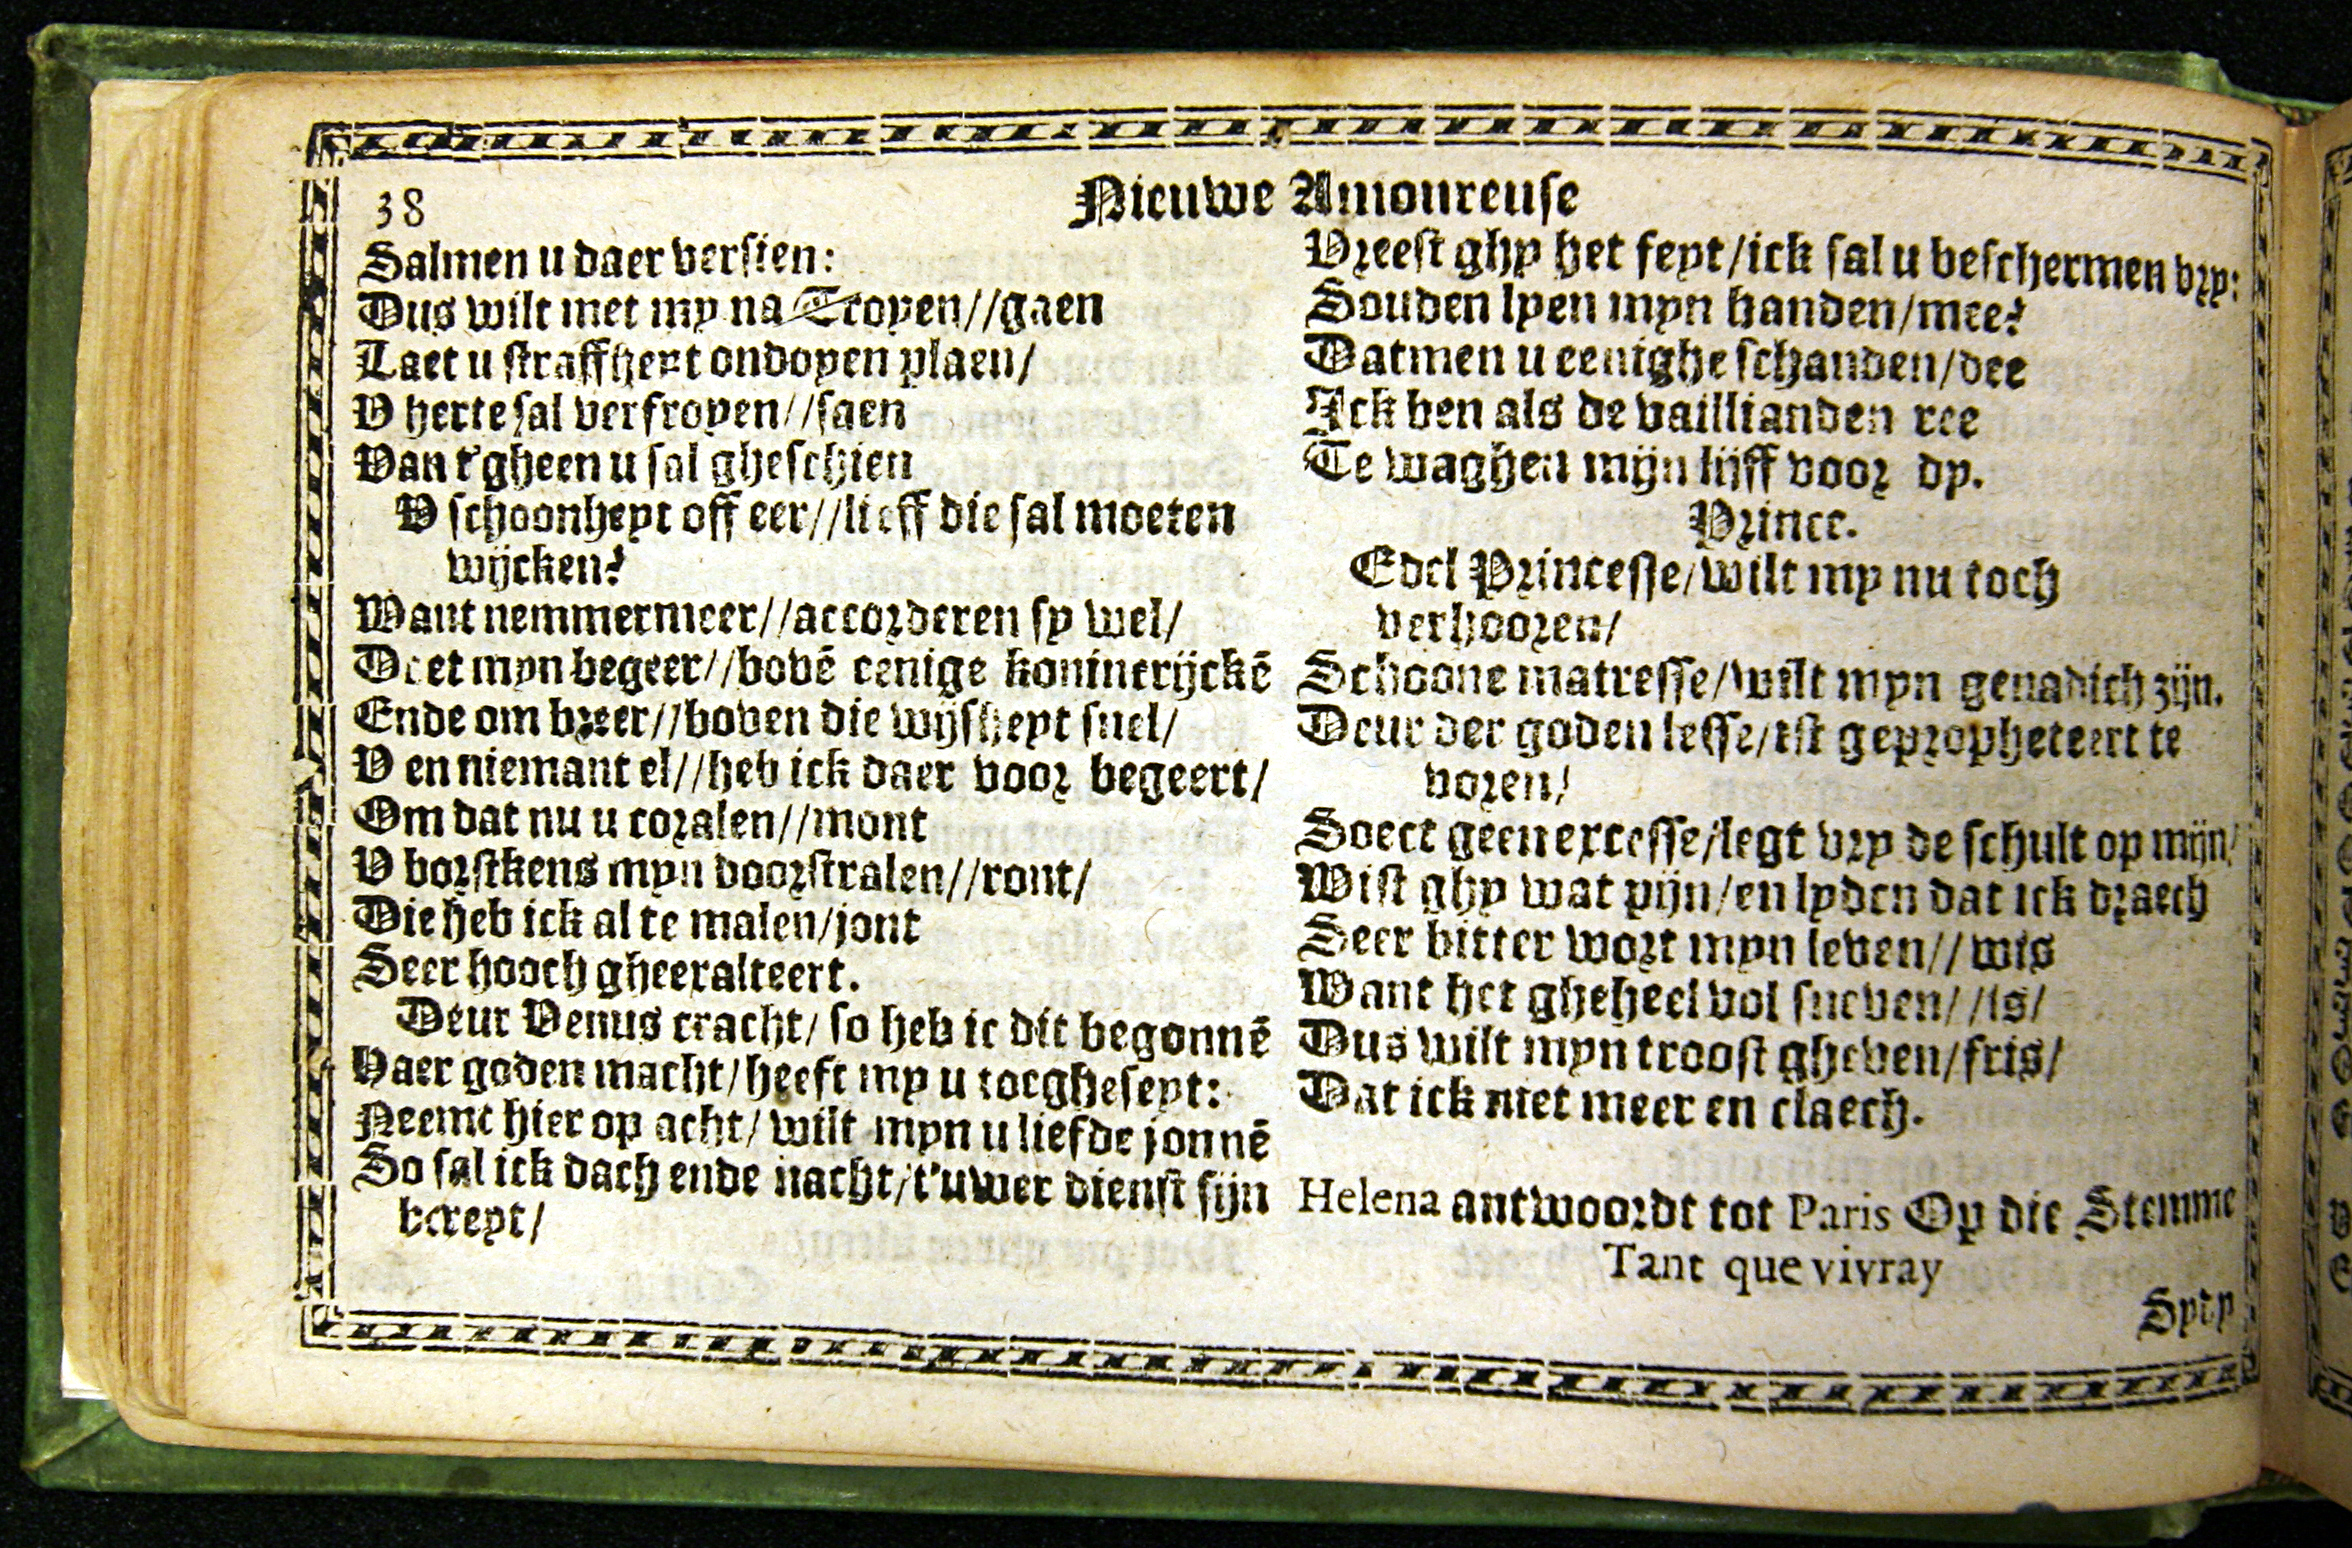 38
Nieuwe Amoureuse
Salmen u daer versien:
Dus wilt met my na Troyen//gaen
Laet u straffheyt ondoyen plaen/
V herte sal verfroyen//saen
Van t'gheen u sal gheschien
V schoonheyt off eer//lieff die sal moeten
wijcken?
Want nemmermeer//accorderen sy wel/
Doet myn begeer//bovē eenige konincrijckē
Ende om breer//boven die wijsheyt snel/
V en niemant el//heb ick daer voor begeert/
Om dat nu u coralen//mont
V borstkens myn doorstralen//ront/
Die heb ick al te malen/jont
Seer hooch gheexalteert.
Deur Venus cracht/ so heb ic dit begonnē
Haer goden macht/heeft my u toegheseyt:
Neemt hier op acht/ wilt myn u liefde jonnē
So sal ick dach ende nacht/t'uwer dienst sijn
bereyt/
Vreest ghy het feyt/ick sal u beschermen vry:
Souden lyen myn handen/mee?
Datmen u eenighe schanden/dee
Ick ben als de vaillianden ree
Te waghen mijn lijff voor dy.
Prince.
Edel Princesse/wilt my nu toch
verhooren/
Schoone matresse/wilt myn genadich zijn.
Deur der goden lesse/ist gepropheteert te
voren/
Soect geen excesse/legt vry de schult op mijn/
Wist ghy wat pijn/en lyden dat ick draech
Seer bitter wort myn leven//wis
Want het gheheel vol sneven//is/
Dus wilt myn troost gheven/fris/
Dat ick niet meer en claech.
Helena antwoordt tot Paris Op die Stemme
Tant que vivray